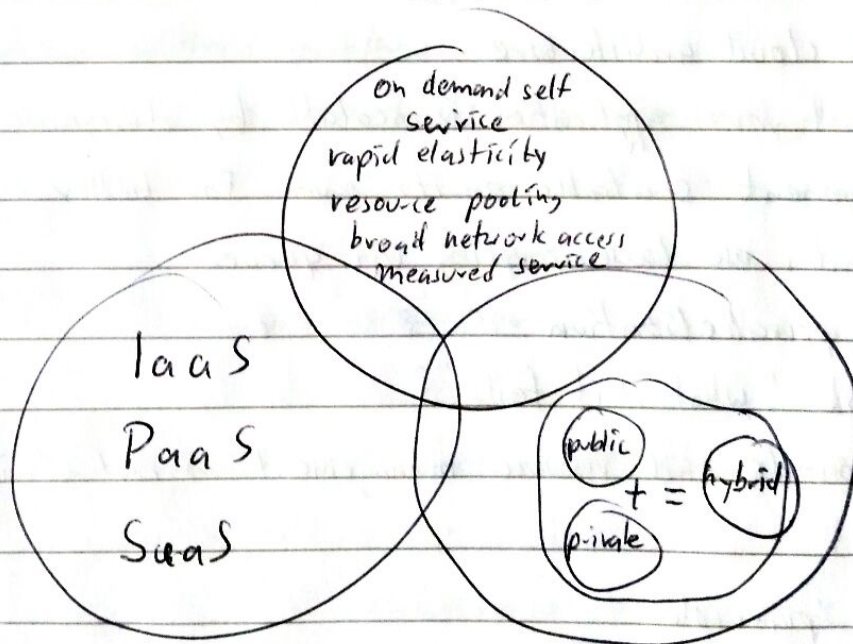 on demand self
service
rapid elasticity
resource pooling
broad network access
measured service
IaaS
PaaS
SaaS
public
+ = hybrid
private